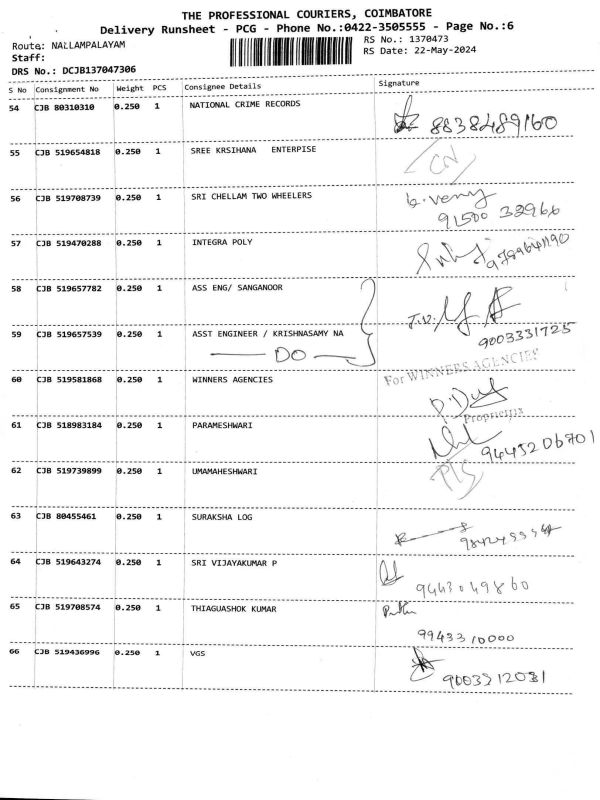 THE PROFESSIONAL COURIERS, COIMBATORE
Delivery Runsheet - PCG - Phone No.:0422-3505555 - Page No.:6
Route: NALLAMPALAYAM
RS No.: 1370473
Staff:
RS Date: 22-May-2024
DRS No.: DCJB137047306
S No Consignment No Weight PCS Consignee Details Signature
54 CJB 80310310 0.250 1 NATIONAL CRIME RECORDS
8838489160
55 CJB 519654818 0.250 1 SREE KRSIHANA ENTERPISE
CN
56 CJB 519708739 0.250 1 SRI CHELLAM TWO WHEELERS
91500 38966
57 CJB 519470288 0.250 1 INTEGRA POLY
58 CJB 519657782 0.250 1 ASS ENG/ SANGANOOR
59 CJB 519657539 0.250 1 ASST ENGINEER / KRISHNASAMY NA
9003331725
DO
60 CJB 519581868 0.250 1 WINNERS AGENCIES
For WINNERS AGENCIES
Proprietrix
61 CJB 518983184 0.250 1 PARAMESHWARI
9445206701
62 CJB 519739899 0.250 1 UMAMAHESHWARI
63 CJB 80455461 0.250 1 SURAKSHA LOG
64 CJB 519643274 0.250 1 SRI VIJAYAKUMAR P
9443049860
65 CJB 519708574 0.250 1 THIAGUASHOK KUMAR
9943310000
66 CJB 519436996 0.250 1 VGS
9003312031